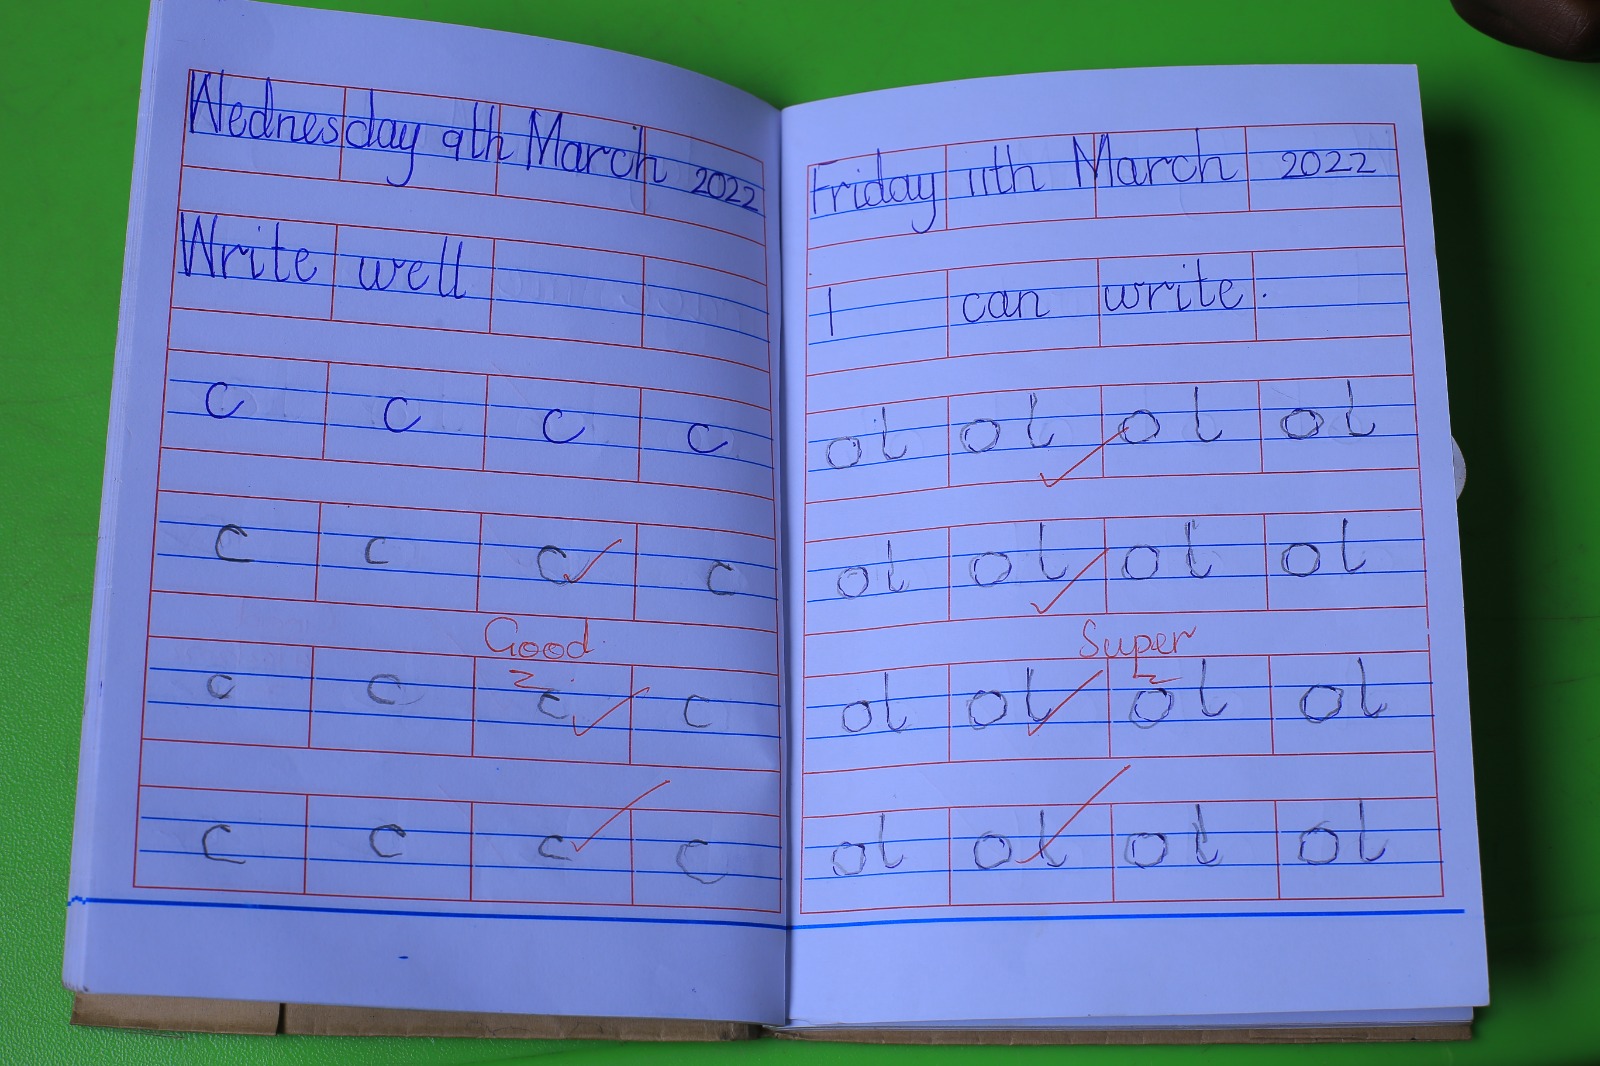 Wednesday 9th March 2022
Write well
c c c c
c c c c
Good
c c c c
c c c c
Friday 11th March 2022
I can write.
ol ol ol ol
ol ol ol ol
Super
ol ol ol ol
ol ol ol ol